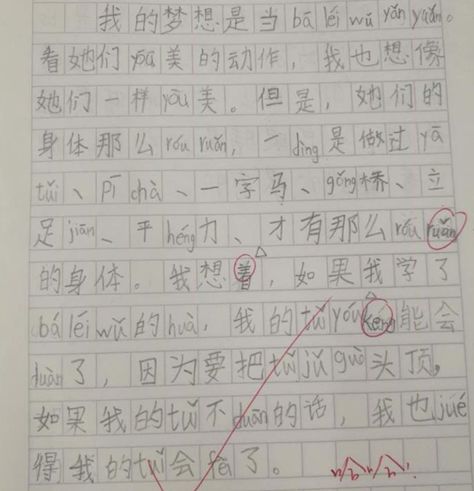 我的梦想是当bā léi wǔ yǎn yuán。
看她们yōu美的动作，我也想像
她们一样yōu美。但是，她们的
身体那么róu ruǎn，一dìng是做过yā
tuǐ、pǐ chà、一字马、gǒng桥、立
足jiān、平héng力、才有那么róu ruǎn
的身体。我想着，如果我学了
bá léi wǔ的huà，我的tuǐ yǒu kěng能会
duàn了，因为要把tuǐ jǔ guò头顶。
如果我的tuǐ不duàn的话，我也jué
得我的tuǐ会fèi了。